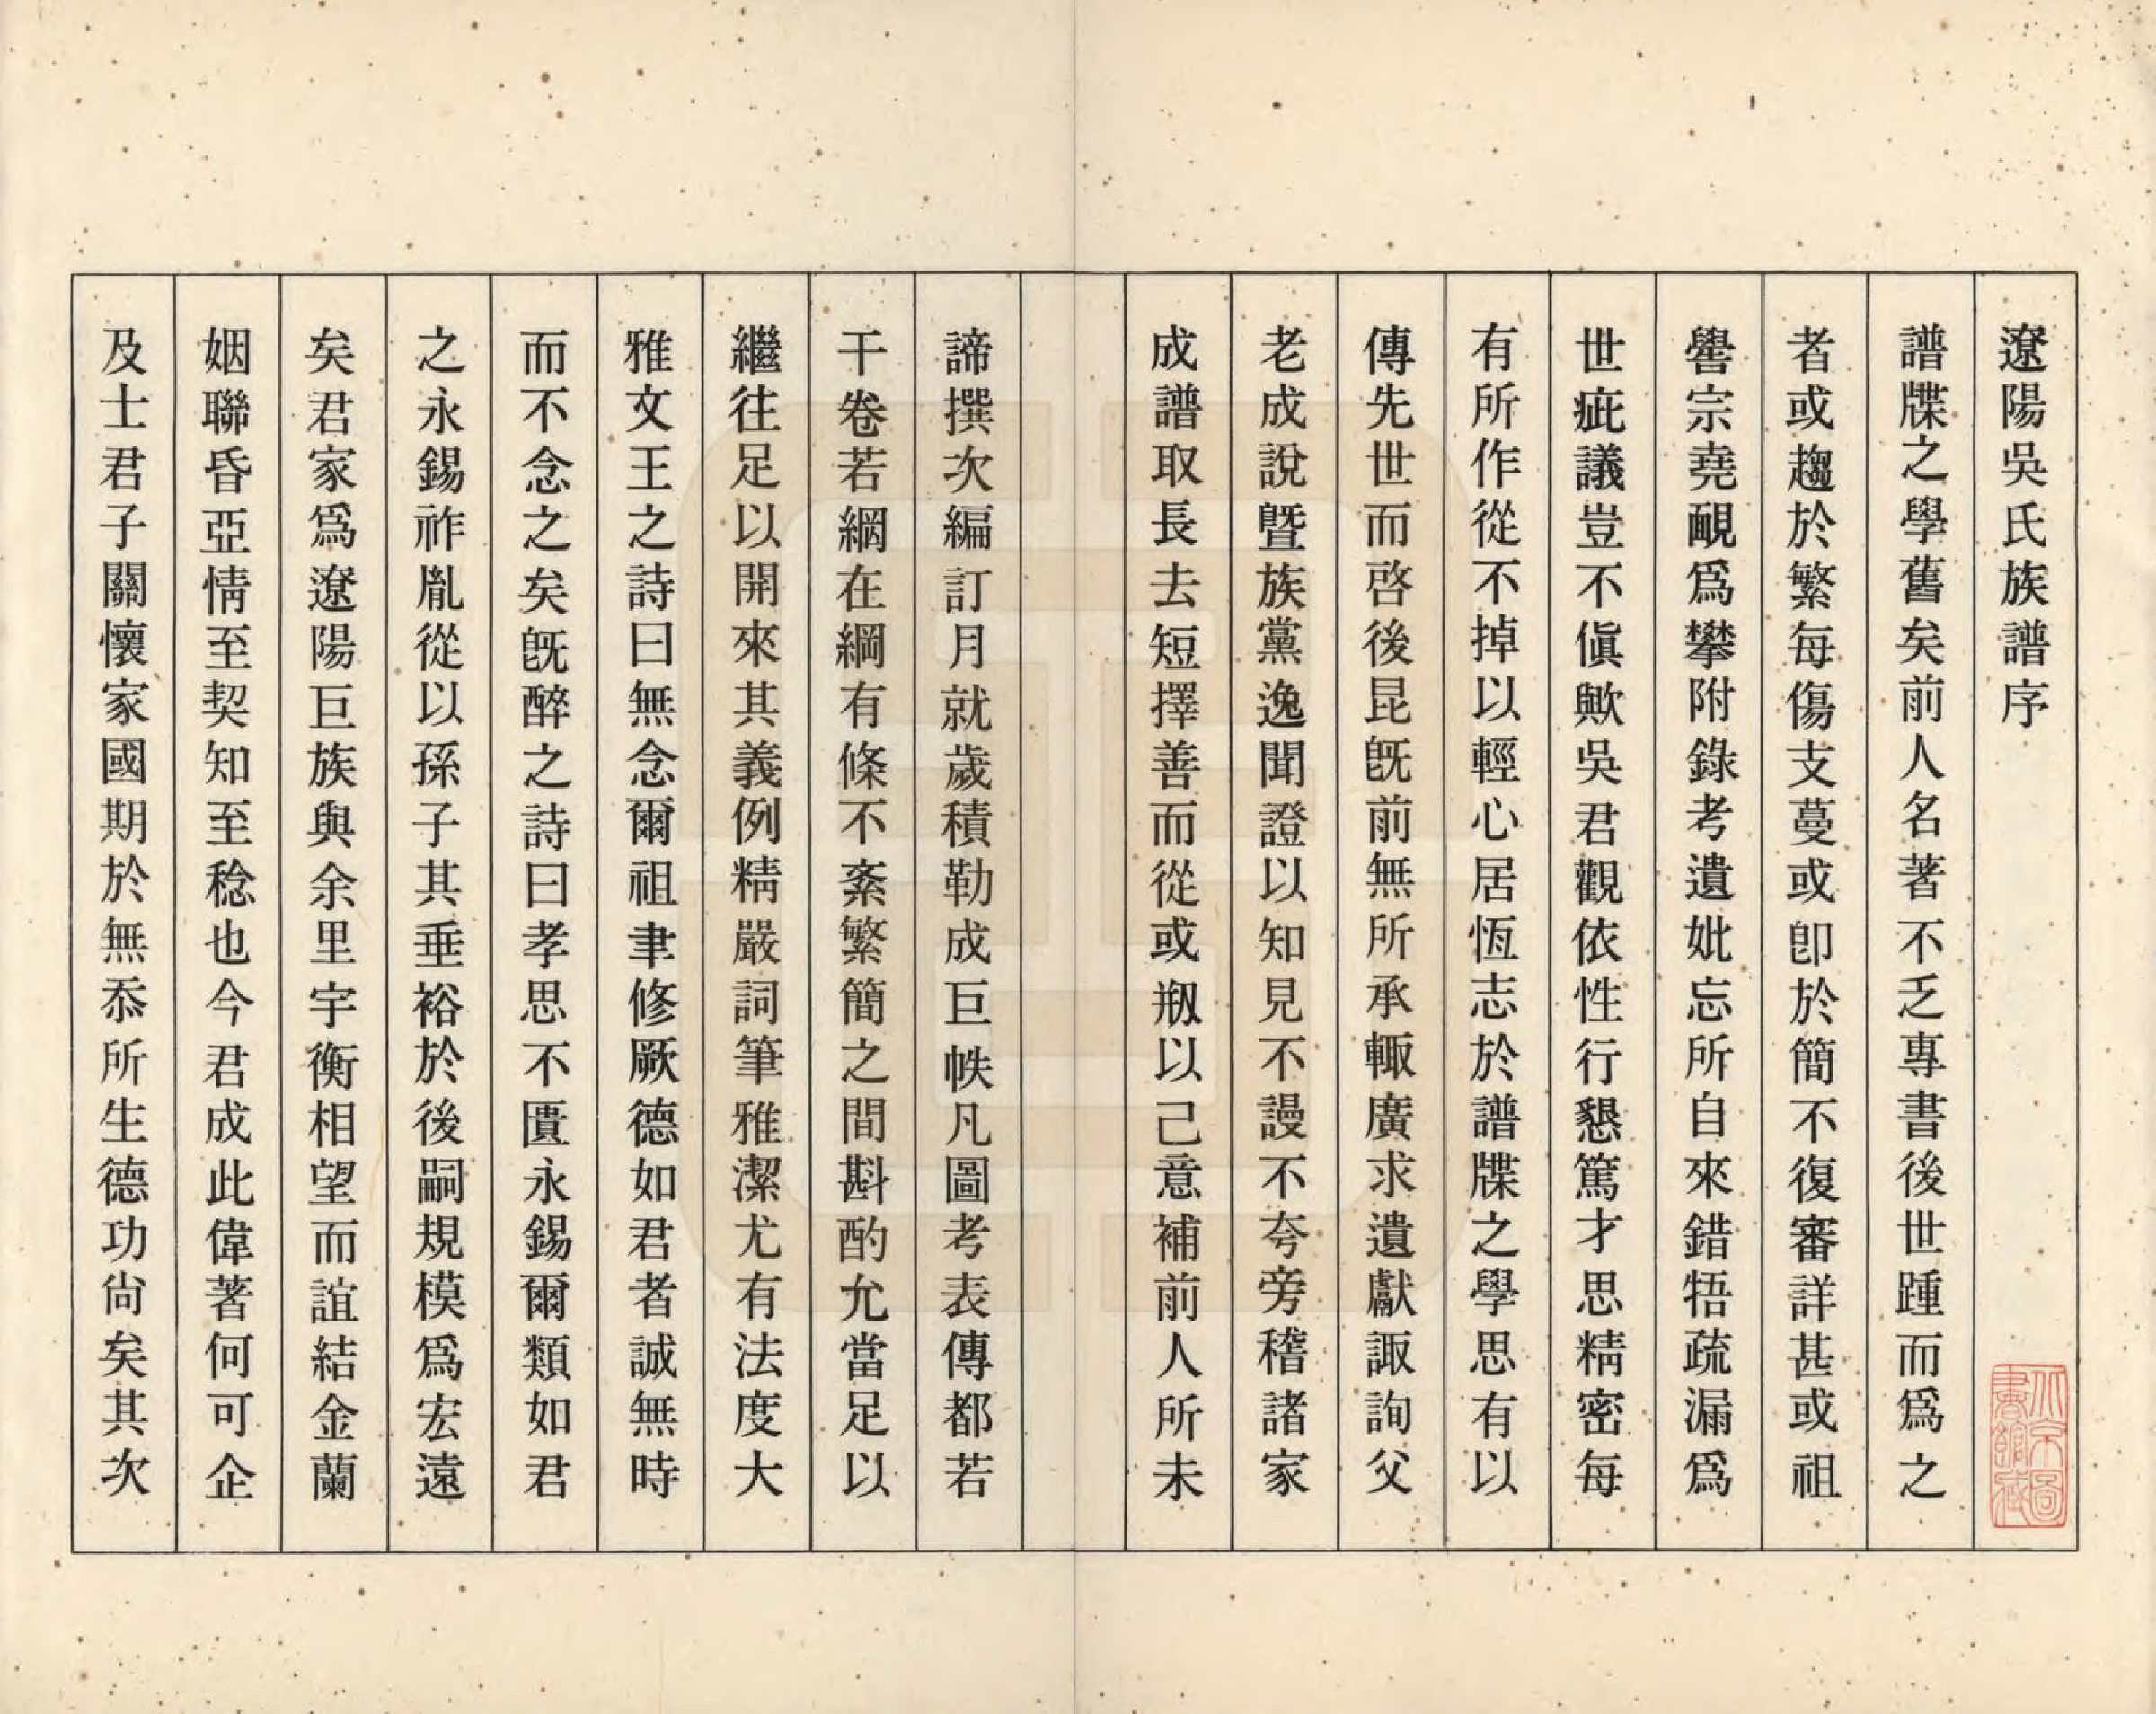 遼陽吳氏族譜序
譜牒之學舊矣前人名著不乏專書後世踵而爲之
者或趨於繁每傷支蔓或卽於簡不復審詳甚或祖
嚳宗堯覼爲攀附錄考遺妣忘所自來錯牾疏漏爲
世疵議豈不傎歟吳君觀依性行懇篤才思精密每
有所作從不掉以輕心居恆志於譜牒之學思有以
傳先世而啓後昆旣前無所承輒廣求遺獻諏詢父
老成說曁族黨逸聞證以知見不謾不夸旁稽諸家
成譜取長去短擇善而從或剏以己意補前人所未
諦撰次編訂月就歲積勒成巨帙凡圖考表傳都若
干卷若網在綱有條不紊繁簡之間斟酌允當足以
繼往足以開來其義例精嚴詞筆雅潔尤有法度大
雅文王之詩曰無念爾祖聿修厥德如君者誠無時
而不念之矣旣醉之詩曰孝思不匱永錫爾類如君
之永錫祚胤從以孫子其垂裕於後嗣規模爲宏遠
矣君家爲遼陽巨族與余里宇衡相望而誼結金蘭
姻聯昏亞情至契知至稔也今君成此偉著何可企
及士君子關懷家國期於無忝所生德功尙矣其次
北京圖書館藏